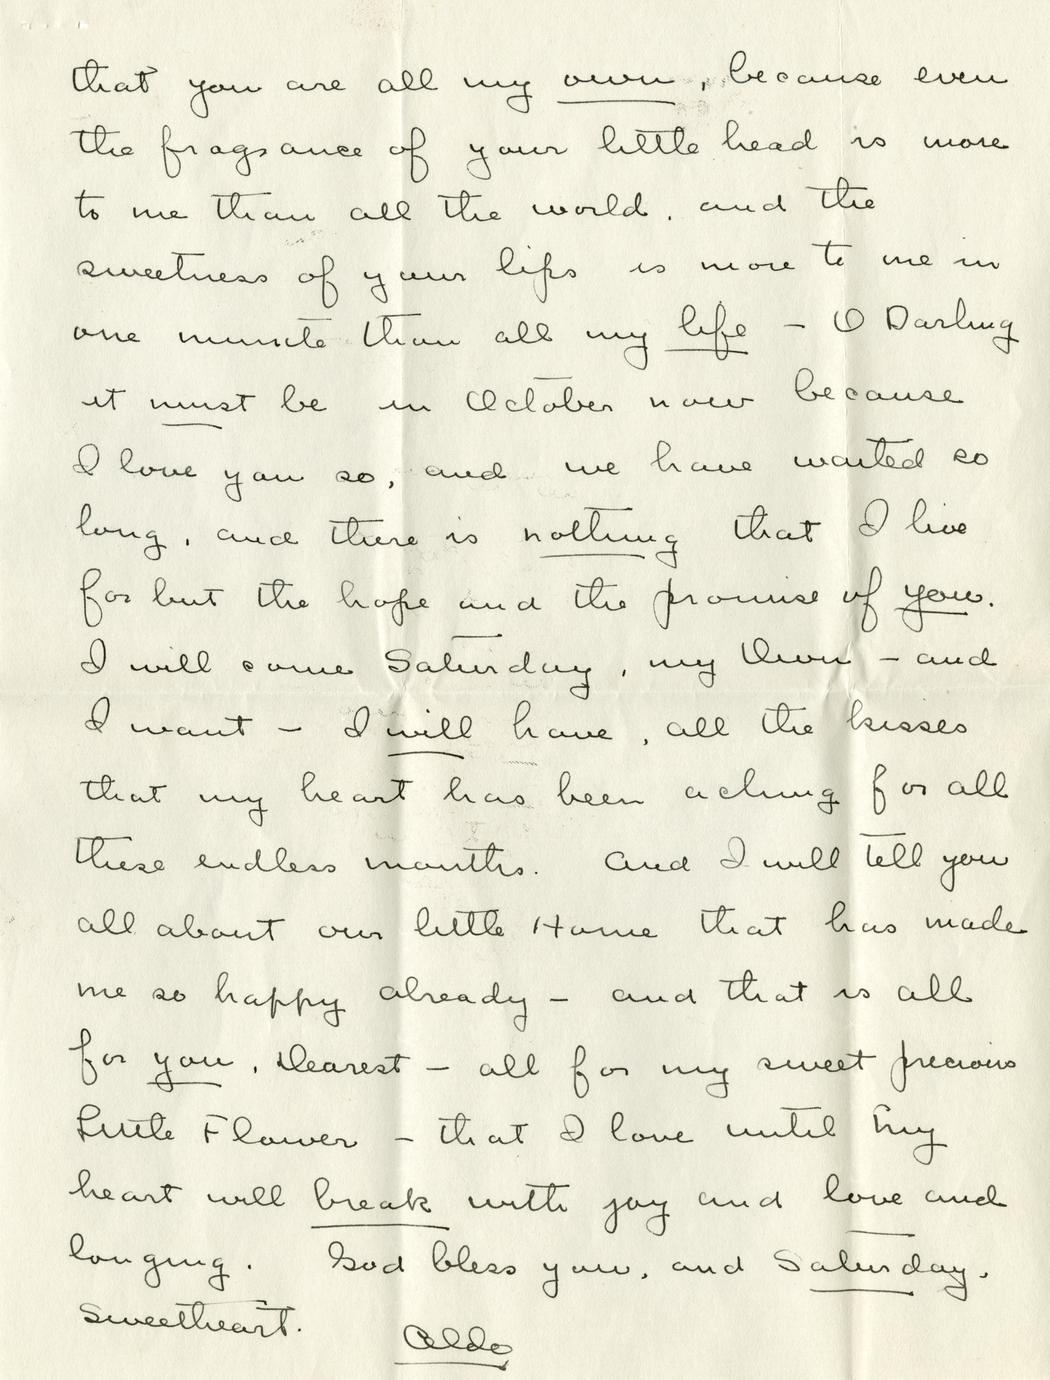 that you are all my own, because even
the fragrance of your little head is more
to me than all the world, and the
sweetness of your lips is more to me in
one minute than all my life - O Darling
it must be in October now because
I love you so, and we have waited so
long, and there is nothing that I live
for but the hope and the promise of you.
I will come Saturday, my Own - and
I want - I will have, all the kisses
that my heart has been aching for all
these endless months. And I will tell you
all about our little Home that has made
me so happy already - and that is all
for you, Dearest - all for my sweet precious
Little Flower - that I love until my
heart will break with joy and love and
longing. God bless you, and Saturday,
Sweetheart.
Aldo